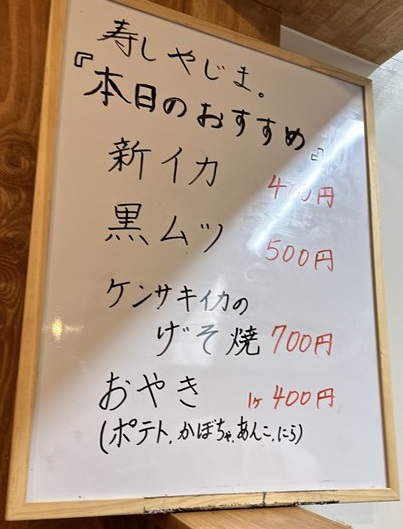 寿しやじま。
『本日のおすすめ』
新イカ
黒ムツ 500円
ケンサキイカの
げそ焼 700円
おやき 1ヶ400円
(ポテト,かぼちゃ,あんこ,にら)